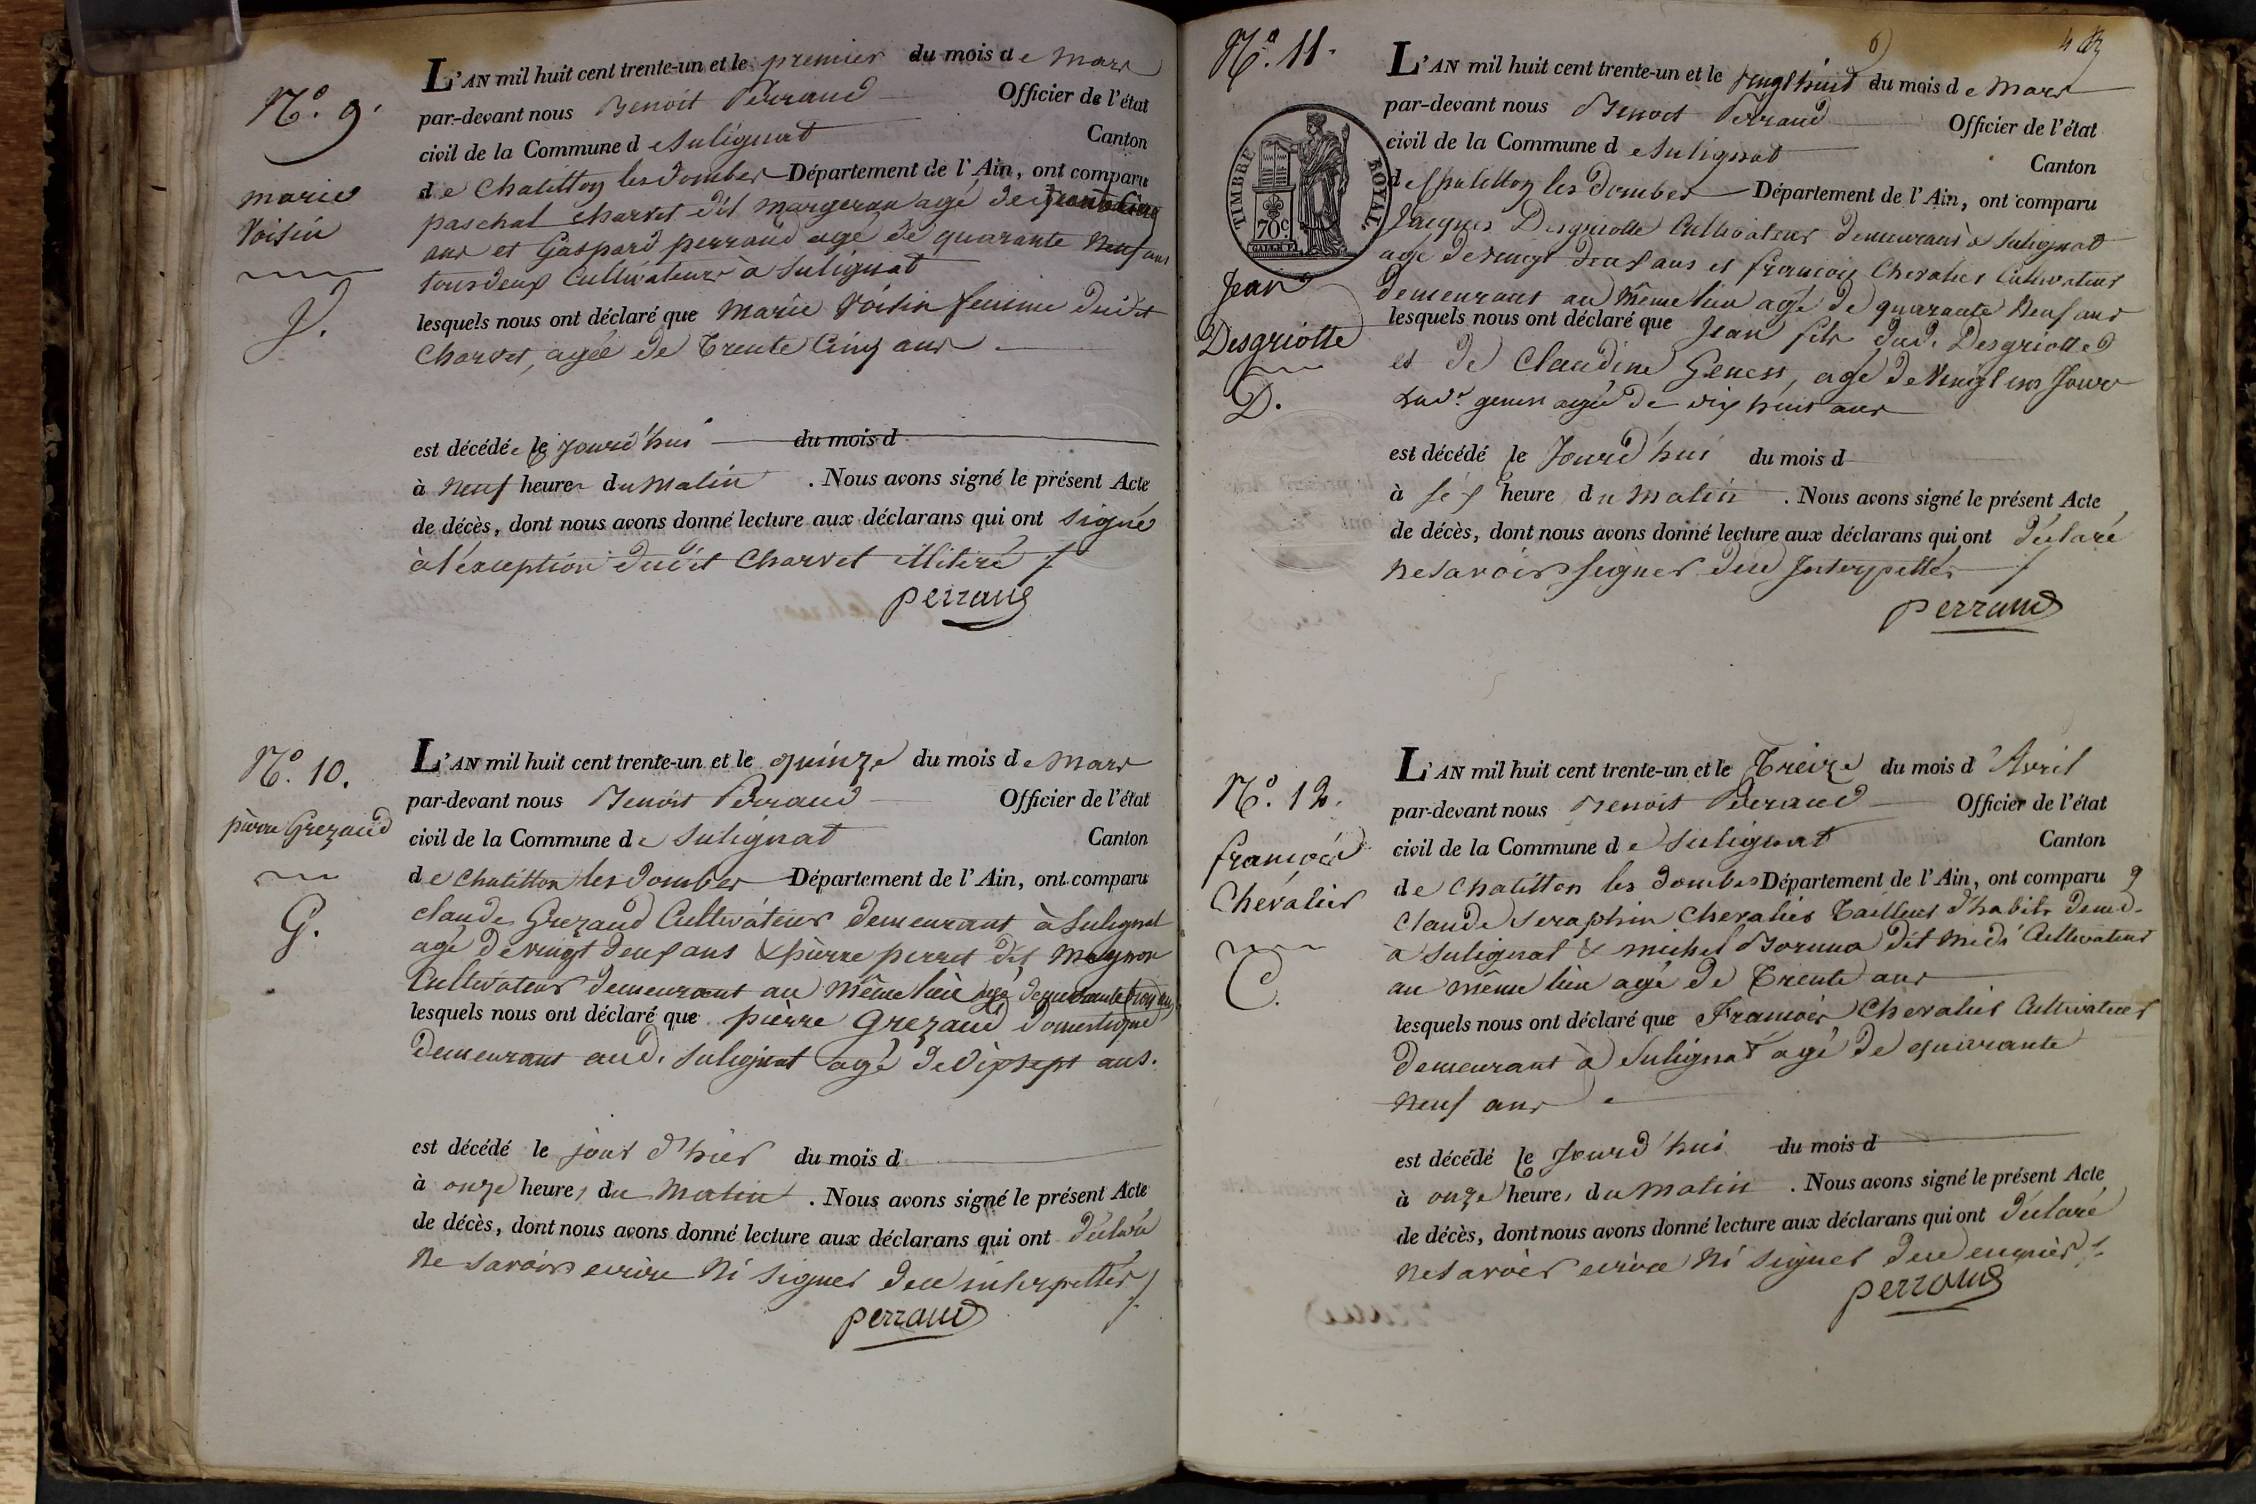 N.o 9.
marie
Voisin
V.
L'AN mil huit cent trente-un et le premier du mois de mars
par-devant nous Benoit Perraud Officier de l'état
civil de la Commune de Sulignat Canton
de Chatillon les Dombes Département de l'Ain, ont comparu
paschal charvet dit margeran agé de
ans et Gaspard perraud agé de quarante Neuf ans
tous deux Cultivateurs à Sulignat
lesquels nous ont déclaré que Marie Voisin femme dudit
Charvet, agée de Trente Cinq ans
est décédée le Jourd'hui du mois d
à Neuf heures du Matin . Nous avons signé le présent Acte
de décès, dont nous avons donné lecture aux déclarans qui ont signé
à l'éxception dudit Charvet illitéré
perraud
N.o 10.
pierre Grezaud
G.
L'AN mil huit cent trente-un et le quinze du mois de Mars
par-devant nous Benoit Perraud Officier de l'état
civil de la Commune de Sulignat Canton
de Chatillon les Dombes Département de l'Ain, ont comparu
claude Grezaud Cultivateur demeurant à Sulignat
agé de vingt deux ans & pierre perret dit Magnon
Cultivateur demeurant au même lieu agé de quarante trois ans
lesquels nous ont déclaré que pierre Grezaud domestique
demeurant aud. Sulignat agé de dix sept ans.
est décédé le jour d'hier du mois d
à onze heures du Matin . Nous avons signé le présent Acte
de décès, dont nous avons donné lecture aux déclarans qui ont déclaré
Ne savoir ecrire Ni signer de ce interpellés
perraud
6)
N.o 11.
TIMBRE ROYAL
70c
Jean
Desgriotte
D.
L'AN mil huit cent trente-un et le vingt huit du mois de Mars
par-devant nous Benoit Perraud Officier de l'état
civil de la Commune de Sulignat Canton
de Chatillon les Dombes Département de l'Ain, ont comparu
Jacques Desgriotte Cultivateur demeurant à Sulignat
agé de vingt deux ans et francois Chevalier Cultivateur
demeurant au même lieu agé de quarante Neuf ans
lesquels nous ont déclaré que Jean fils dud. Desgriotte
et de Claudine Genest, agé de Vingt un Jours
agée de dix huit ans
est décédé le Jourd'hui du mois d
à six heure du matin . Nous avons signé le présent Acte
de décès, dont nous avons donné lecture aux déclarans qui ont déclaré
Ne savoir signer de ce Interpellés
perraud
N.o 12.
francois
Chevalier
C.
L'AN mil huit cent trente-un et le Treize du mois d'Avril
par-devant nous Benoit Perraud Officier de l'état
civil de la Commune de Sulignat Canton
de Chatillon les Dombes Département de l'Ain, ont comparu
Claude Seraphin Chevalier Tailleur d'habits dem.
à Sulignat & michel dit Cultivateur
au même lieu agé de Trente ans
lesquels nous ont déclaré que François Chevalier Cultivateur
demeurant à Sulignat agé de quarante
Neuf ans
est décédé le Jourd'hui du mois d
à onze heures du Matin . Nous avons signé le présent Acte
de décès, dont nous avons donné lecture aux déclarans qui ont déclaré
Ne savoir ecrire Ni signer de ce enquis
perraud